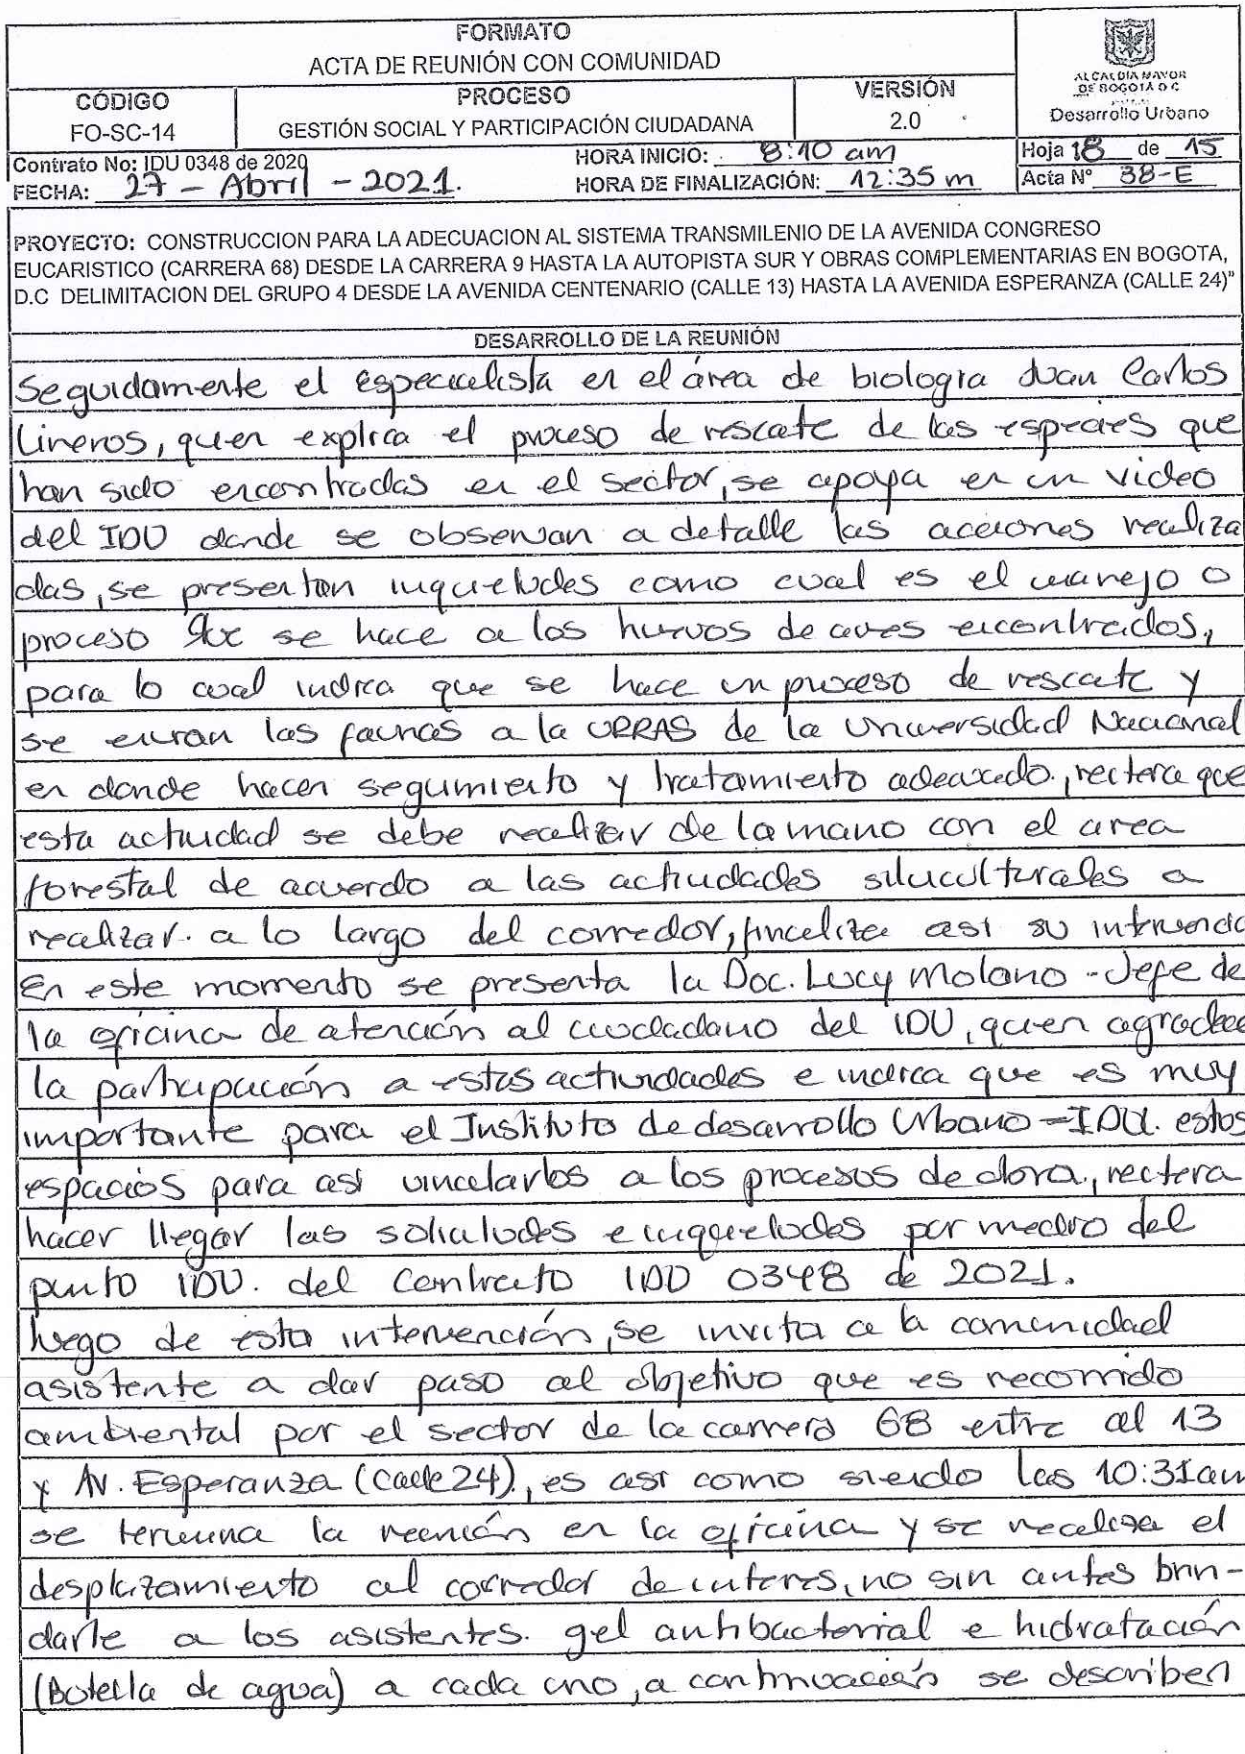 FORMATO
ACTA DE REUNIÓN CON COMUNIDAD
CÓDIGO
FO-SC-14
PROCESO
GESTIÓN SOCIAL Y PARTICIPACIÓN CIUDADANA
VERSIÓN
2.0
ALCALDIA MAYOR
DE BOGOTÁ D C
Desarrollo Urbano
Contrato No: IDU 0348 de 2020
FECHA: 27 - Abril - 2021.
HORA INICIO: 8:10 am
HORA DE FINALIZACIÓN: 12:35 m
Hoja 18 de 15
Acta N° 38-E
PROYECTO: CONSTRUCCION PARA LA ADECUACION AL SISTEMA TRANSMILENIO DE LA AVENIDA CONGRESO
EUCARISTICO (CARRERA 68) DESDE LA CARRERA 9 HASTA LA AUTOPISTA SUR Y OBRAS COMPLEMENTARIAS EN BOGOTA,
D.C DELIMITACION DEL GRUPO 4 DESDE LA AVENIDA CENTENARIO (CALLE 13) HASTA LA AVENIDA ESPERANZA (CALLE 24)"
DESARROLLO DE LA REUNIÓN
Seguidamente el especialista en el área de biologia Juan Carlos
Lineros, quien explica el proceso de rescate de las especies que
han sido encontradas en el sector, se apoya en un video
del IDU donde se observan a detalle las acciones realiza
das, se presentan inquietudes como cual es el manejo o
proceso que se hace a los huevos de aves encontrados,
para lo cual indica que se hace un proceso de rescate y
se envian las faunas a la URRAS de la Universidad Nacional
en donde hacen seguimiento y tratamiento adecuado, reitera que
esta actividad se debe realizar de la mano con el area
forestal de acuerdo a las actividades silviculturales a
realizar. a lo largo del corredor, finaliza asi su intervencio
En este momento se presenta la Doc. Lucy Molano - Jefe de
la oficina de atención al ciudadano del IDU, quien agradece
la participación a estas actividades e indica que es muy
importante para el Instituto de desarrollo Urbano - IDU. estos
espacios para asi vincularlos a los procesos de obra, reitera
hacer llegar las solicitudes e inquietudes por medio del
punto IDU. del contrato IDU 0348 de 2021.
luego de esta intervención, se invita a la comunidad
asistente a dar paso al objetivo que es recorrido
ambiental por el sector de la carrera 68 entre cll 13
y Av. Esperanza (Calle 24), es asi como siendo las 10:31am
se termina la reunión en la oficina y se realiza el
desplazamiento al corredor de interes, no sin antes brin-
darle a los asistentes. gel antibacterial e hidratación
(Botella de agua) a cada uno, a continuación se describen